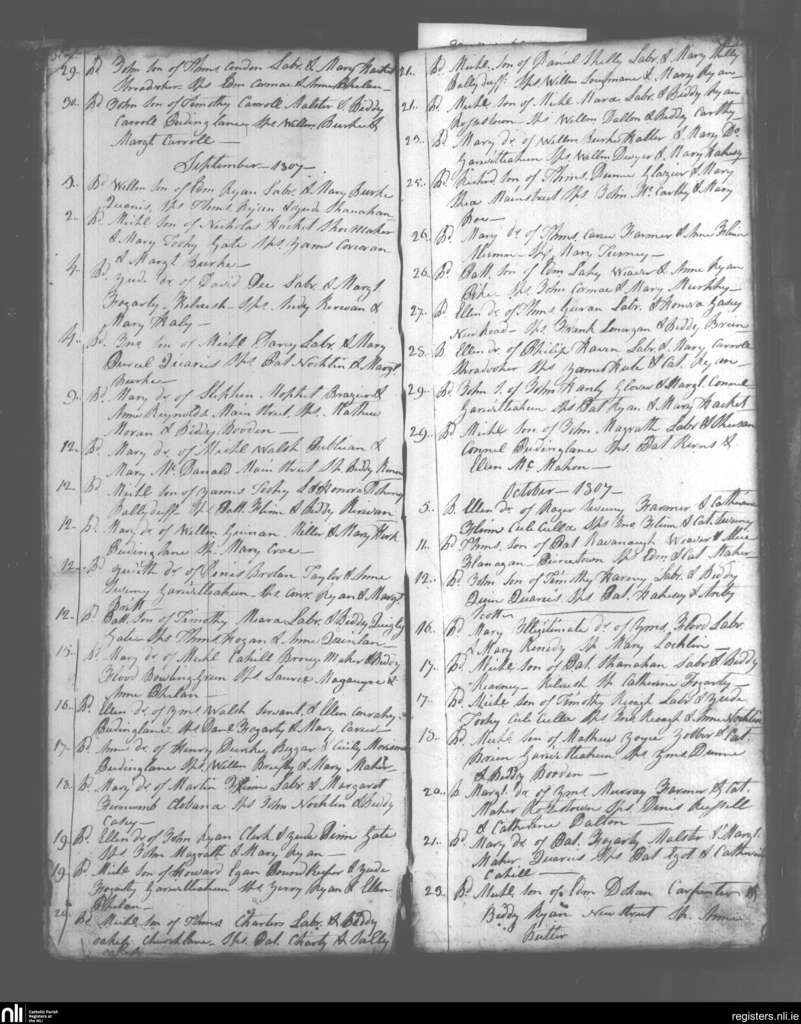 29. Bd. John son of Thms Condon Labr. & Mary Hacket
Thradrher Sps Edm Cormac & Anne Phelan
30. Bd John Son of Timothy Carroll Malster & Biddy
Carroll Pudinglane Sps Willm Burke &
Margt Carroll
September 1807
1. Bd Willm Son of Edm Ryan Labr. & Mary Burke
Quaries, Sps Thms Ryan & Shanahan
2. Bd. Michl Son of Nicholas Hacket Shoemaker
& Mary Toohy Gate Sps. James Corcoran
& Margt Burke
4. Bd. Judh dr of David Dee Labr. & Margt
Fogarty Kilrush Sps Andy Kerwan &
Mary Haly
4. Bd. Jno Son of Michl Labr & Mary
Purcel Quaries Sps Pat Nochlin & Margt
Burke
9. Bd. Mary dr of Stephen Mophet Brazier &
Anne Reynolds Main Street, Sps. Mathew
Moran & Biddy Booden
12. Bd Mary dr of Michl Walsh &
Mary Mc Danald Main Street Sp. Biddy
12. Bd. Michl Son of James Toohy L & Honora Doheny
Ballyduff Sps Patt. Flinn & Biddy Kerwan
12. Bd. Mary dr of Willm Guinan Miller & Mary
Pudinglane Sp. Mary Croe
12. Bd Judith dr of Denis Brolan Taylor & Anne
Sweeny Garieltleahun Sps Conr. Ryan & Margt
Britt
12. Bd Patt. Son of Timothy Mara Labr. & Biddy Quigley
Gate Sps Thms Hogan & Anne
15. Bd Mary dr of Michl Cahill Broney Maker & Biddy
Flood Bowling Green Sps Laurce Magauyre &
Anne Phelan
16. Bd. Ellen dr of Jms Walsh Servant, & Ellen
Pudinglane Sps Danl Fogarty & Mary Carew
17. Bd. Anne dr. of Henry Beggar & Cicily
Pudinglane Sps Willm Briefly & Mary Maher
18. Bd Mary dr of Martin Labr & Margaret
Clobana Sps John Nochlin & Biddy
Casey
19. Bd. Ellen dr of John Ryan Clerk & Judh Gate
Sps John Magrath & Mary Ryan
19. Bd. Michl Son of Howard Egan & Judh
Fogarty Garieltleahun Sps Jerry Ryan & Ellen
Phelan
20. Bd Michl Son of Thms Charters Labr. & Biddy
Oakely Churchlane Sps. Pat. Charty & Sally
21. Bd. Michl. Son of Daniel Shelly Labr. & Mary Shelly
Ballyduff Sps Willm & Mary Ryan
21. Bd. Michl Son of Michl Mara Labr. & Biddy Ryan
Rosestown Sps Willm Dalton & Biddy Carthy
23. Bd Mary dr of Willm Burke Hatter & Mary Do.
Garieltleahun Sps Willm Dwyer & Mary Fahesy
25. Bd. Richard Son of Thms. Dunne Glazier & Mary
Shea Mainstreet Sps John Mc Carthy & Mary
Roe
26. Bd. Mary dr of Thms Carew Farmer & Anne Flinn
Sp. Mary Tierney
26. Bd. Patt. Son of Edm Lahy Weaver & Anne Ryan
Pike Sps John Cormac & Mary Murphy
27. Bd Ellen dr of Thms Guiran Labr. & Honora Casey
Newroad Sps Frank Lonergan & Biddy Breen
28. B. Ellen dr of Philip Haven Labr. & Mary Carroll
Thradrher Sps James Hart & Cat. Ryan
29. Bd John S. of John Hanly Glover & Margt. Connel
Garieltleahun Sps Pat Ryan & Mary Hacket
29. Bd Michl Son of John Magrath Labr &
Connel Pudinglane Sps. Pat Kerns &
Ellen Mc Mahon
October 1807
5. B. Ellen dr of Roger Sweeny Farmer & Catherine
Flinn Culeculla Sps Jno Flinn & Cat. Sweeny
11. Bd Thms. Son of Pat Kavanaugh Weaver & Alice
Flanagan Piercetown Sps Edm & Cat Maher
12. Bd. John Son of Timothy Harvey Labr. & Biddy
Quaries Sps Pat. Fahesy & Anty
Scott
16. Bd. Mary Illigitimate dr of Jms. Flood Labr.
& Mary Kenedy Sp Mary Locklin
17. Bd Michl Son of Pat Shanahan Labr & Biddy
Kearney Kilrush Sp Catherine Fogarty
17. Bd. Michl Son of Timothy Keough Labr & Judh
Toohy Culeculla Sps Jno Keough & Anne Nochlin
18. Bd. Michl Son of Mathew Joyce Jobber & Cat
Breen Garieltleahun Sps Jms Dunne
& Biddy Booden
20. B. Margt. dr of Jms Murray Farmer & Cat.
Maher Rosestown Sps Denis Russell
& Catherine Dalton
21. Bd. Mary dr of Pat. Fogarty Malster & Margt.
Maher Quaries Sps Pat & Catherine
Cahill
23. Bd Michl Son of Edm Dolan Carpenter &
Biddy Ryan New Street Sp. Anne
Butler
nli
Catholic Parish
Registers at
the NLI
registers.nli.ie